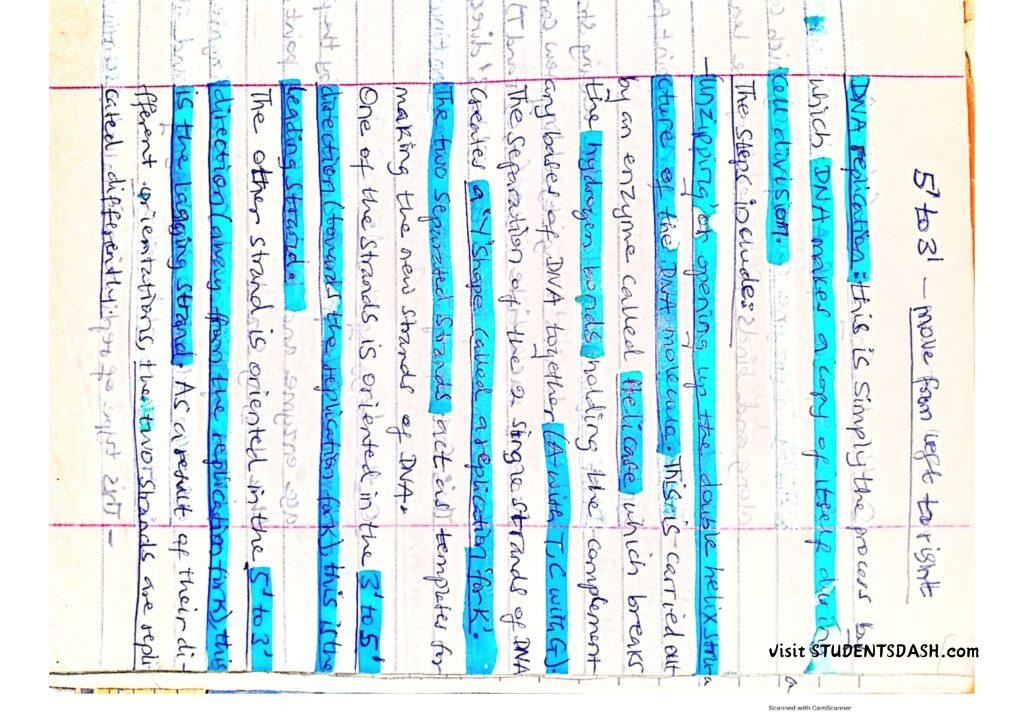 5' to 3' - move from left to right
DNA replication: this is simply the process by
which DNA makes a copy of itself during
cell division.
The steps include:
- Unzipping or opening up the double helix stru-
cture of the DNA molecule. This is carried out
by an enzyme called Helicase which breaks
the hydrogen bonds holding the complement
ary bases of DNA together (A with T, C with G).
The separation of the 2 single strands of DNA
creates a "Y" shape called a replication 'fork'.
The two separated strands act as templates for
making the new strands of DNA.
One of the strands is oriented in the 3' to 5'
direction (towards the replication fork), this is the
leading strand.
The other strand is oriented in the 5' to 3'
direction (away from the replication fork), this
is the lagging strand. As a result of their di-
fferent orientations, the two strands are repli
cated differently.
visit STUDENTSDASH.com
Scanned with CamScanner